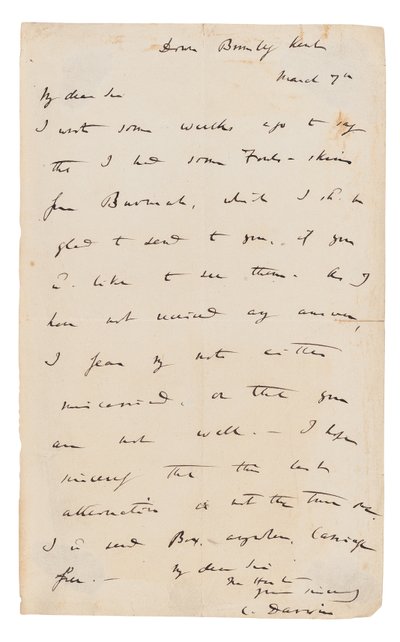 Down Bromley Kent
March 7th
My dear Sir
I wrote some weeks ago to say
that I had some Fowls-skins
from Burmah, which I shd be
glad to send to you, if you
wd like to see them. As I
have not received any answer,
I fear my note either
miscarried, or that you
are not well. — I hope
sincerely that the last
alternative is not the true one.
I cd send Box, anywhere, Carriage
free. —
My dear Sir
yours sincerely
C. Darwin